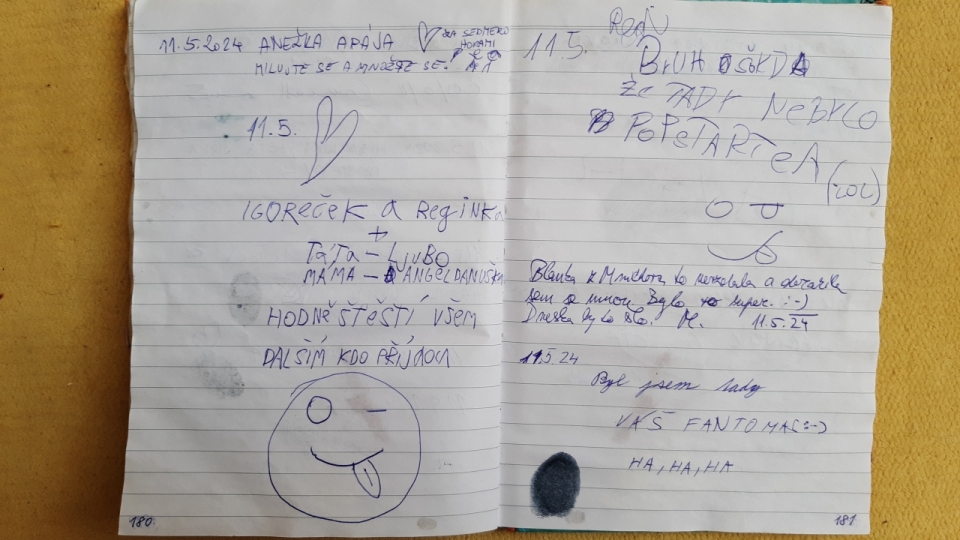 11.5.2024 ANEŽKA APÁJA
ZA SEDMERO
HORAMI
MILUJTE SE A MNOŽTE SE!
11.5.
IGOREČEK a REGINKA
+
TÁTA – LJUBO
MÁMA – ANGELDANUŠKA
HODNĚ ŠTĚSTÍ VŠEM
DALŠÍM KDO PŘÍJDOU
180
11.5.
BRUH
ŽE TADY NEBYLO
(LOL)
Blanka z Mnichova to nevzdala a
sem se mnou. Bylo to super. :-)
Dneska bylo sto. M. 11.5.24
11.5.24
Byl jsem tady
VÁŠ FANTOMAS :-)
HA, HA, HA
181